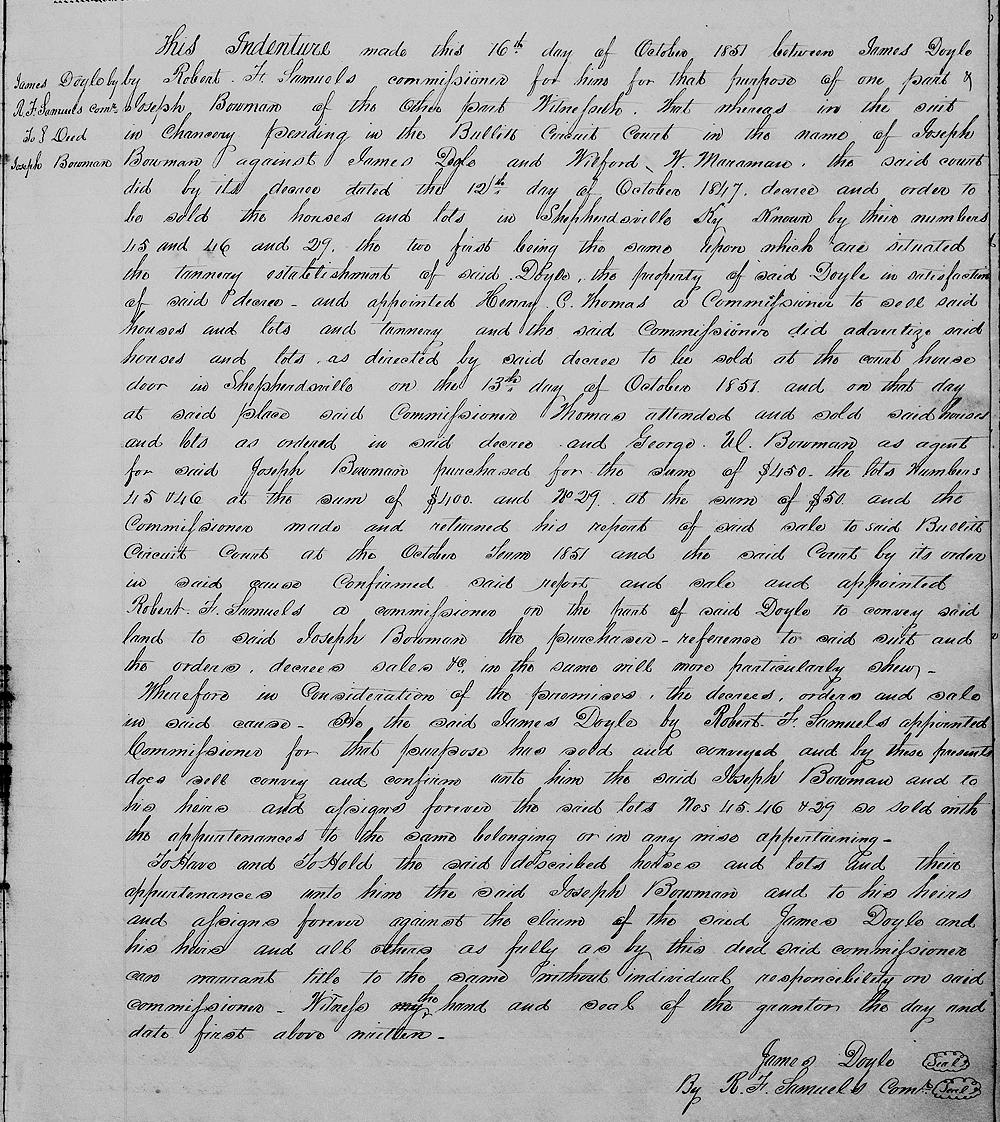 This Indenture made this 16th day of October 1851 between James Doyle
James Doyle by
R. F. Samuels comr.
To } Deed
Joseph Bowman
by Robert. F. Samuels commissioner for him for that purpose of one part &
Joseph Bowman of the Other part Witnesseth. that whereas in the suit
in Chancery pending in the Bullitt Circuit Court in the name of Joseph
Bowman against James Doyle and Wilford W. Maraman. the said court
did by its decree dated the 12th day of October 1847. decree and order to
be sold the houses and lots in Shepherdsville Ky Known by their numbers
45 and 46 and 29. the two first being the same upon which are situated
the tannery establishment of said Doyle, the property of said Doyle in satisfaction
of said decree - and appointed Henry C. Thomas a Commissioner to sell said
houses and lots and tannery and the said Commissioner did advertize said
houses and lots. as directed by said decree to be sold at the court house
door in Shepherdsville on the 13th day of October 1851. and on that day
at said place said Commissioner Thomas attended and sold said houses
and lots as ordered in said decree and George. W. Bowman as agent
for said Joseph Bowman purchased for the sum of $450- the lots Numbers
45 & 46 at the sum of $400. and No 29. at the sum of $50. and the
Commissioner made and returned his report of said sale to said Bullitt
Circuit Court at the October Term 1851 and the said Court by its order
in said cause Confirmed said report and sale and appointed
Robert. F. Samuels a commissioner on the part of said Doyle to convey said
land to said Joseph Bowman the purchaser - reference to said suit and
the orders, decrees sales &c. in the same will more particularly shew, -
Wherefore in Consideration of the premises, the decrees, orders and sale
in said cause - He the said James Doyle by Robert. F. Samuels appointed
Commissioner for that purpose has sold and conveyed and by these presents
does sell convey and confirm unto him the said Joseph Bowman and to
his heirs and assigns forever the said lots Nos 45. 46 & 29 so sold with
the appurtenances to the same belonging or in any wise appertaining -
To Have and To Hold the said described houses and lots and their
appurtenances unto him the said Joseph Bowman and to his heirs
and assigns forever against the claim of the said James Doyle and
his heirs and all others as fully as by this deed said commissioner
can warrant title to the same without individual responcibility on said
commissioner - Witness my the hand and seal of the grantor the day and
date first above written -
James Doyle Seal
By R. F. Samuels Comr. Seal